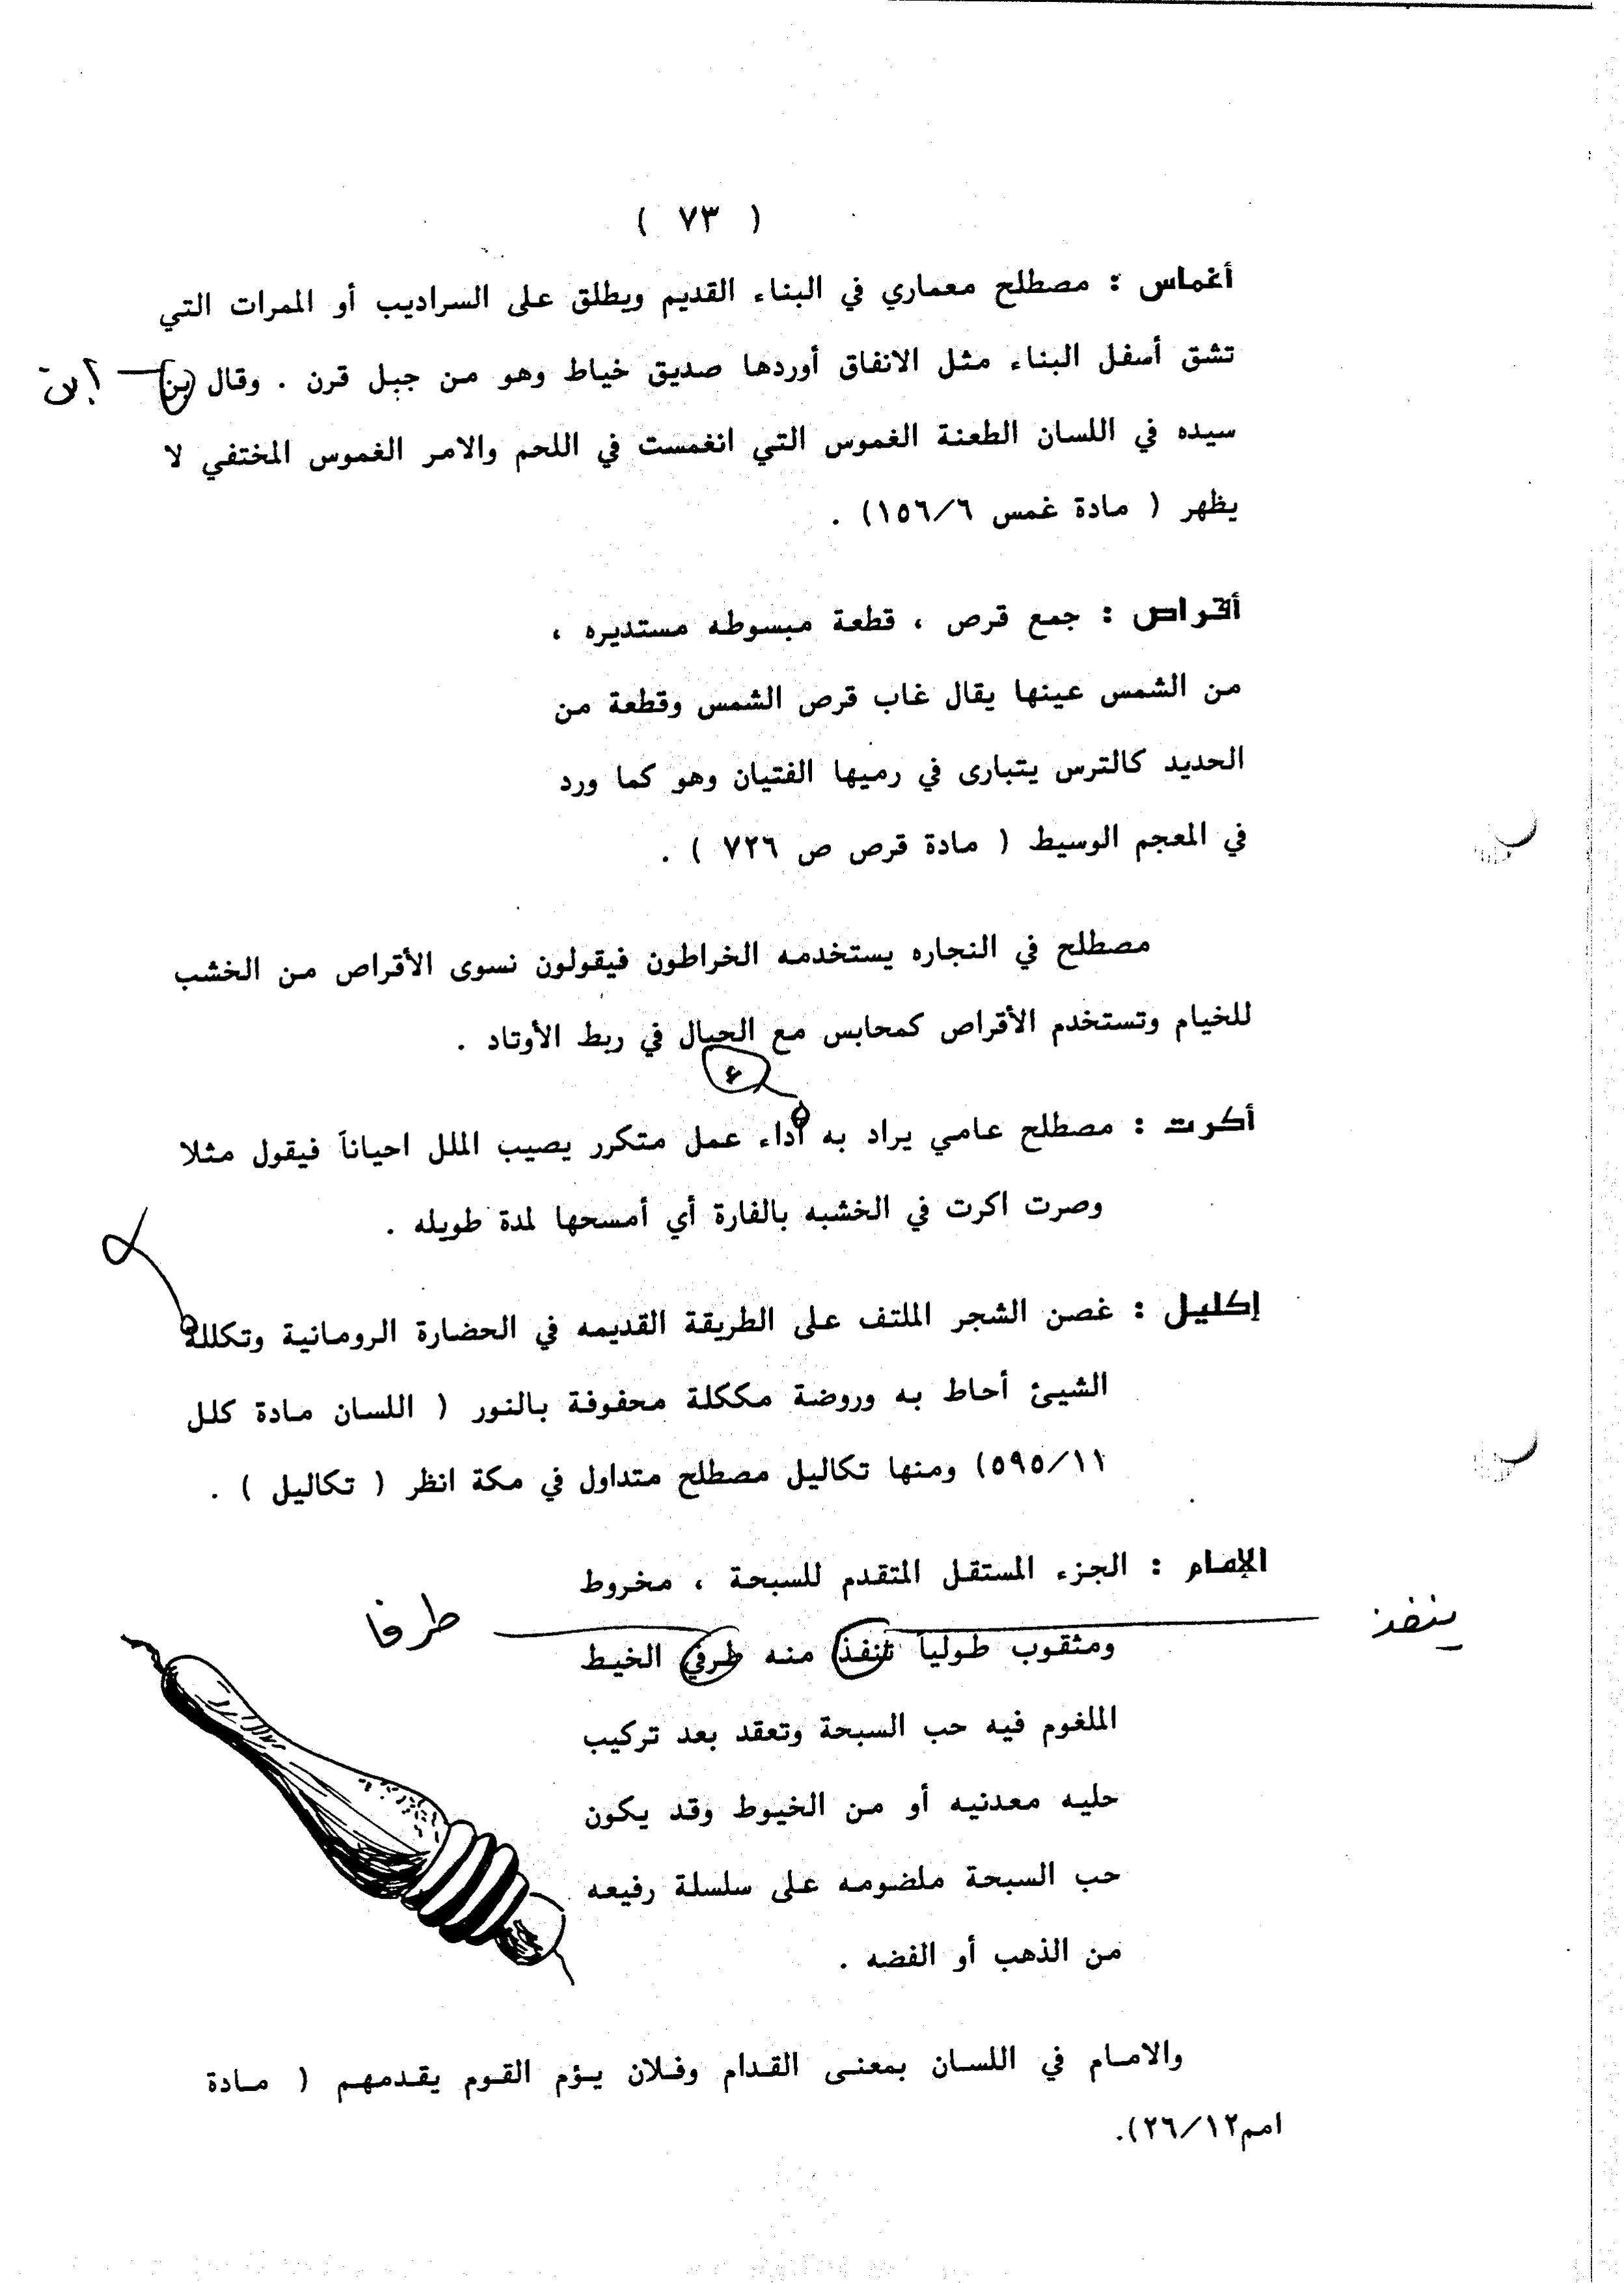 ( ٧٣ )
أغماس : مصطلح معماري في البناء القديم ويطلق على السراديب أو الممرات التي
تشق أسفل البناء مثل الانفاق أوردها صديق خياط وهو من جبل قرن . وقال بن ابن
سيده في اللسان الطعنة الغموس التي انغمست في اللحم والامر الغموس المختفي لا
يظهر ( مادة غمس ١٥٦/٦) .
أقراص : جمع قرص ، قطعة مبسوطه مستديره ،
من الشمس عينها يقال غاب قرص الشمس وقطعة من
الحديد كالترس يتبارى في رميها الفتيان وهو كما ورد
في المعجم الوسيط ( مادة قرص ص ٧٢٦ ) .
مصطلح في النجاره يستخدمه الخراطون فيقولون نسوى الأقراص من الخشب
للخيام وتستخدم الأقراص كمحابس مع الحبال في ربط الأوتاد .
ء
أكرت : مصطلح عامي يراد به أداء عمل متكرر يصيب الملل احياناً فيقول مثلا
وصرت اكرت في الخشبه بالفارة أي أمسحها لمدة طويله .
إكليل : غصن الشجر الملتف على الطريقة القديمه في الحضارة الرومانية وتكللة
الشيئ أحاط به وروضة مككلة محفوفة بالنور ( اللسان مادة كلل
٥٩٥/١١) ومنها تكاليل مصطلح متداول في مكة انظر ( تكاليل ) .
الإمام : الجزء المستقل المتقدم للسبحة ، مخروط
ينفذ طرفا
ومثقوب طولياً تنفذ منه طرفي الخيط
الملغوم فيه حب السبحة وتعقد بعد تركيب
حليه معدنيه أو من الخيوط وقد يكون
حب السبحة ملضومه على سلسلة رفيعه
من الذهب أو الفضه .
والامام في اللسان بمعنى القدام وفلان يؤم القوم يقدمهم ( مادة
امم٢٦/١٢).